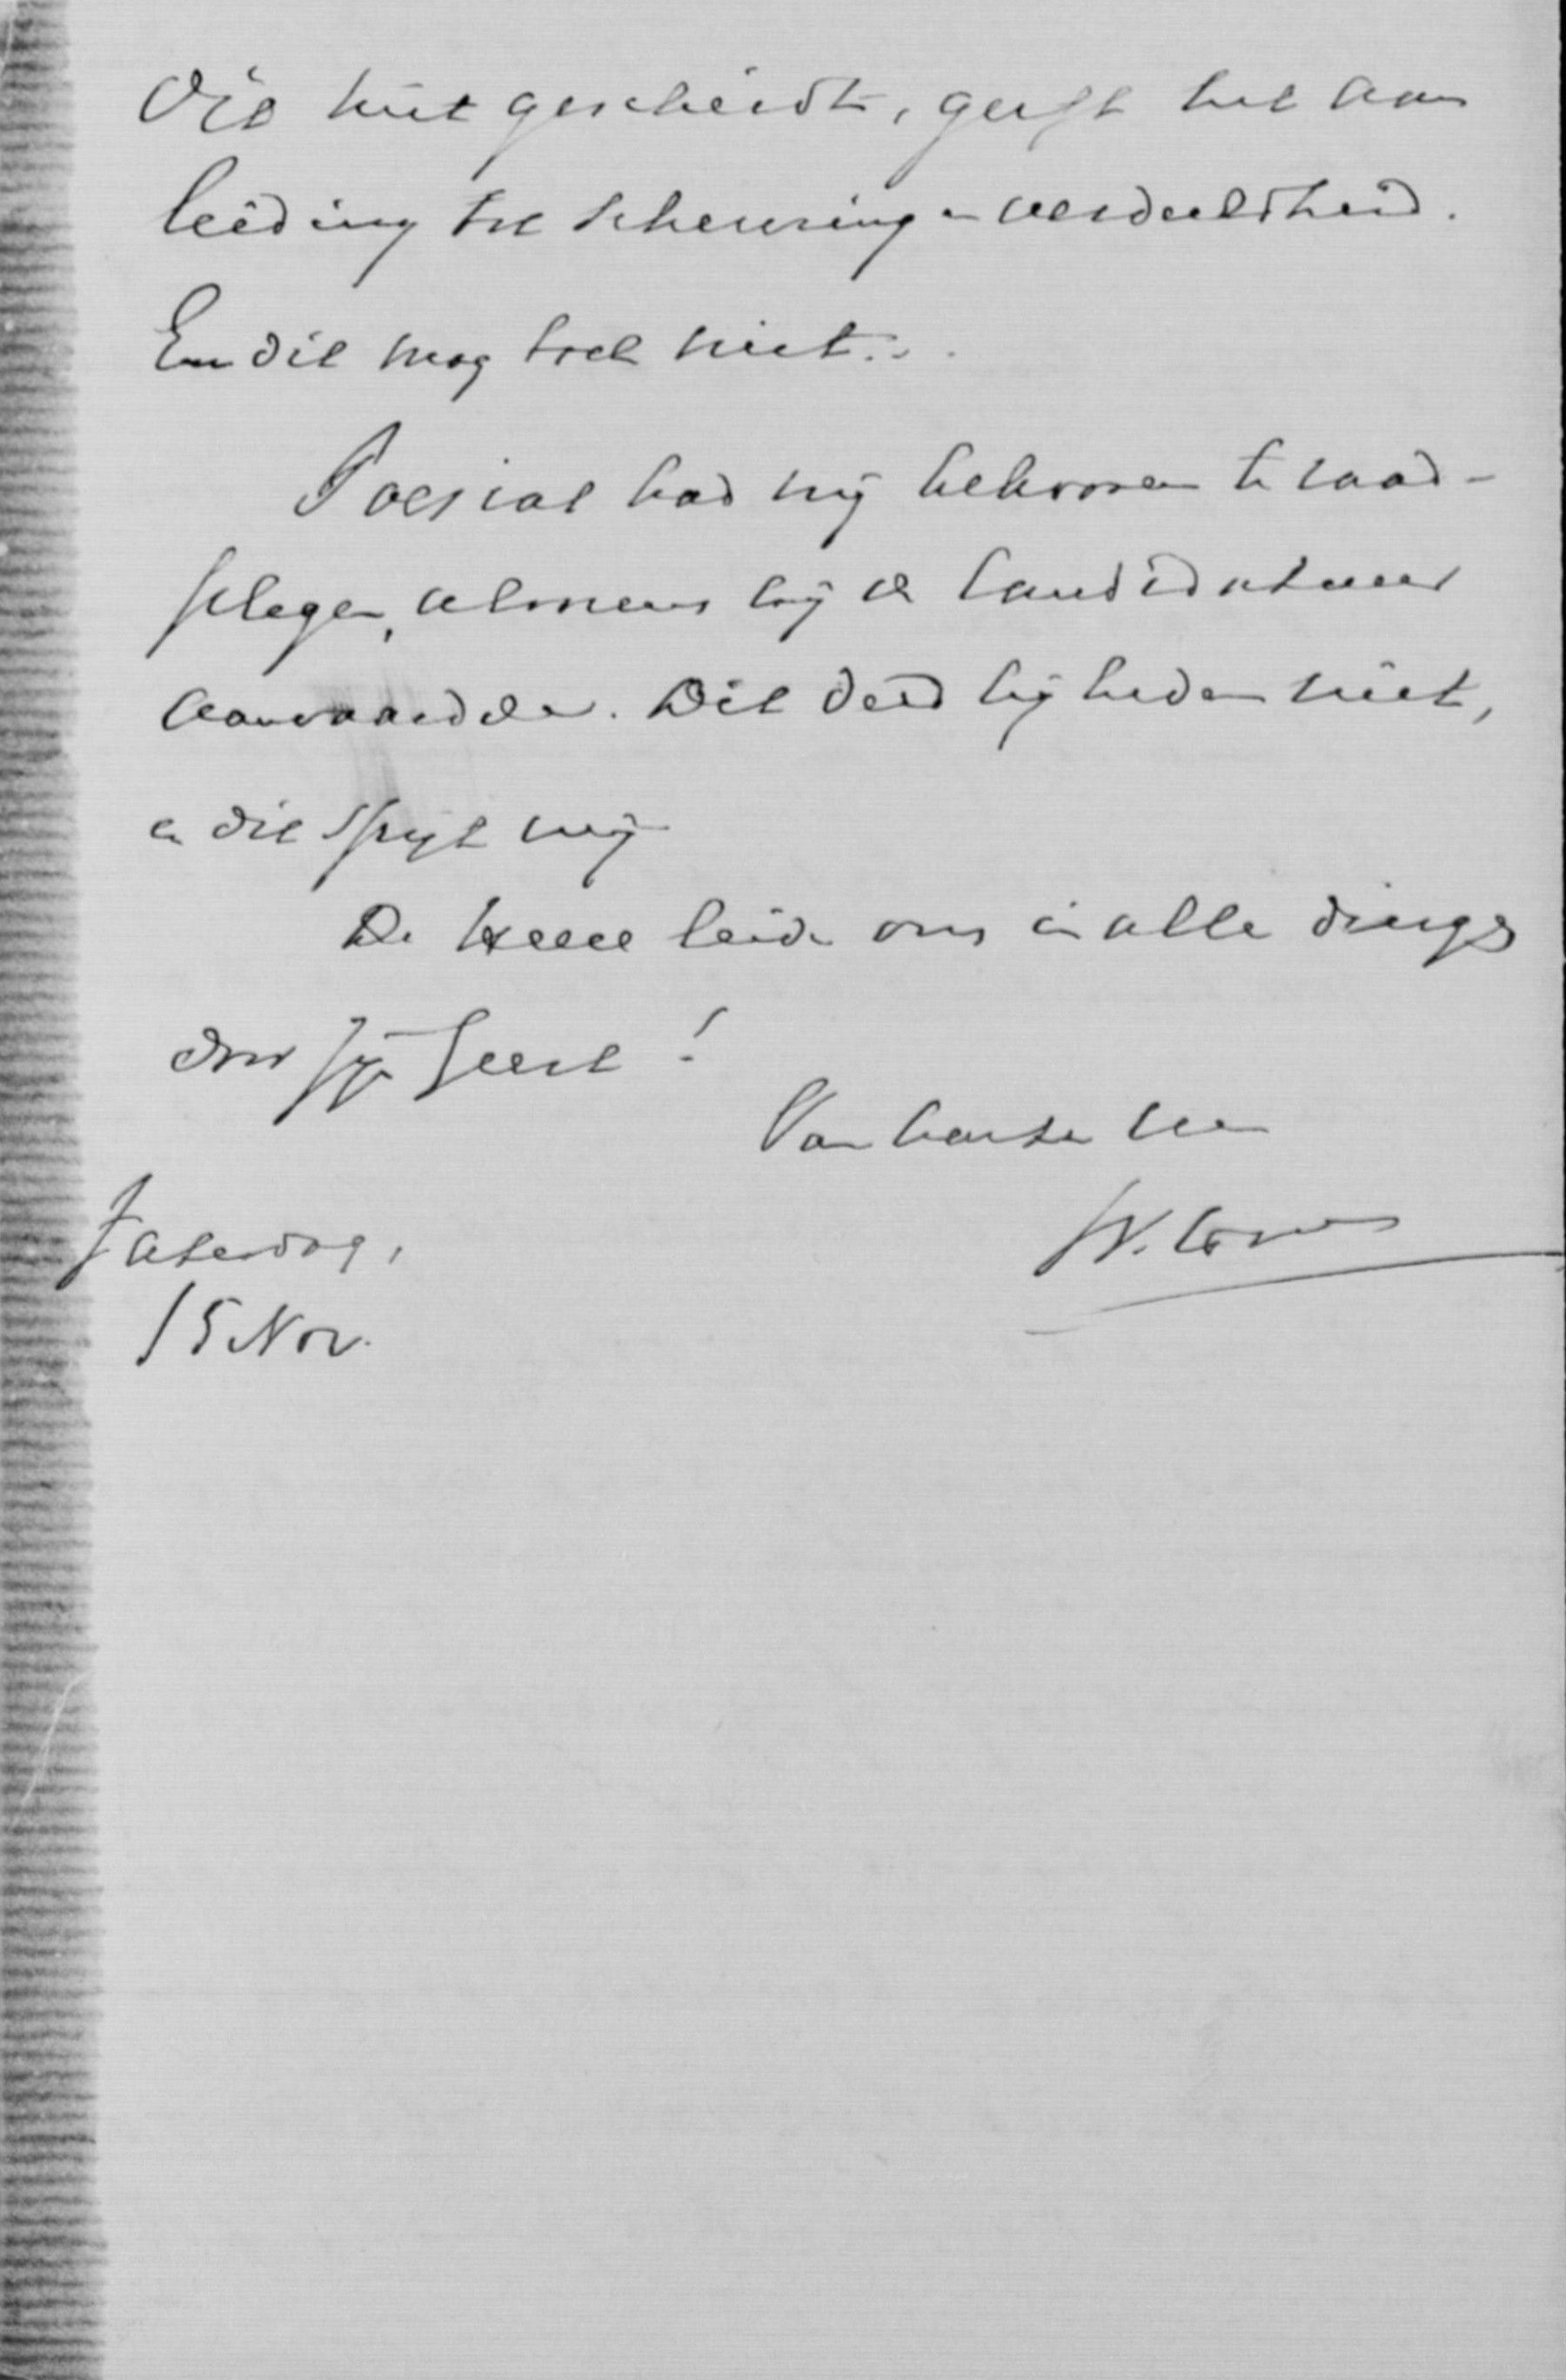 dit niet geschiedt, geeft het aan
leiding tot scheuring en verdeeldheid.
En dit mag toch niet...
Poesiat had mij behooren te raad-
plegen, alvorens hij de candidatuur
aanvaardde. Dit deed hij heden niet,
en dit spijt mij
De Heere leide ons in alle dingen
door zijn Geest!
Van harte uw
Zaterdag,
15 Nov.